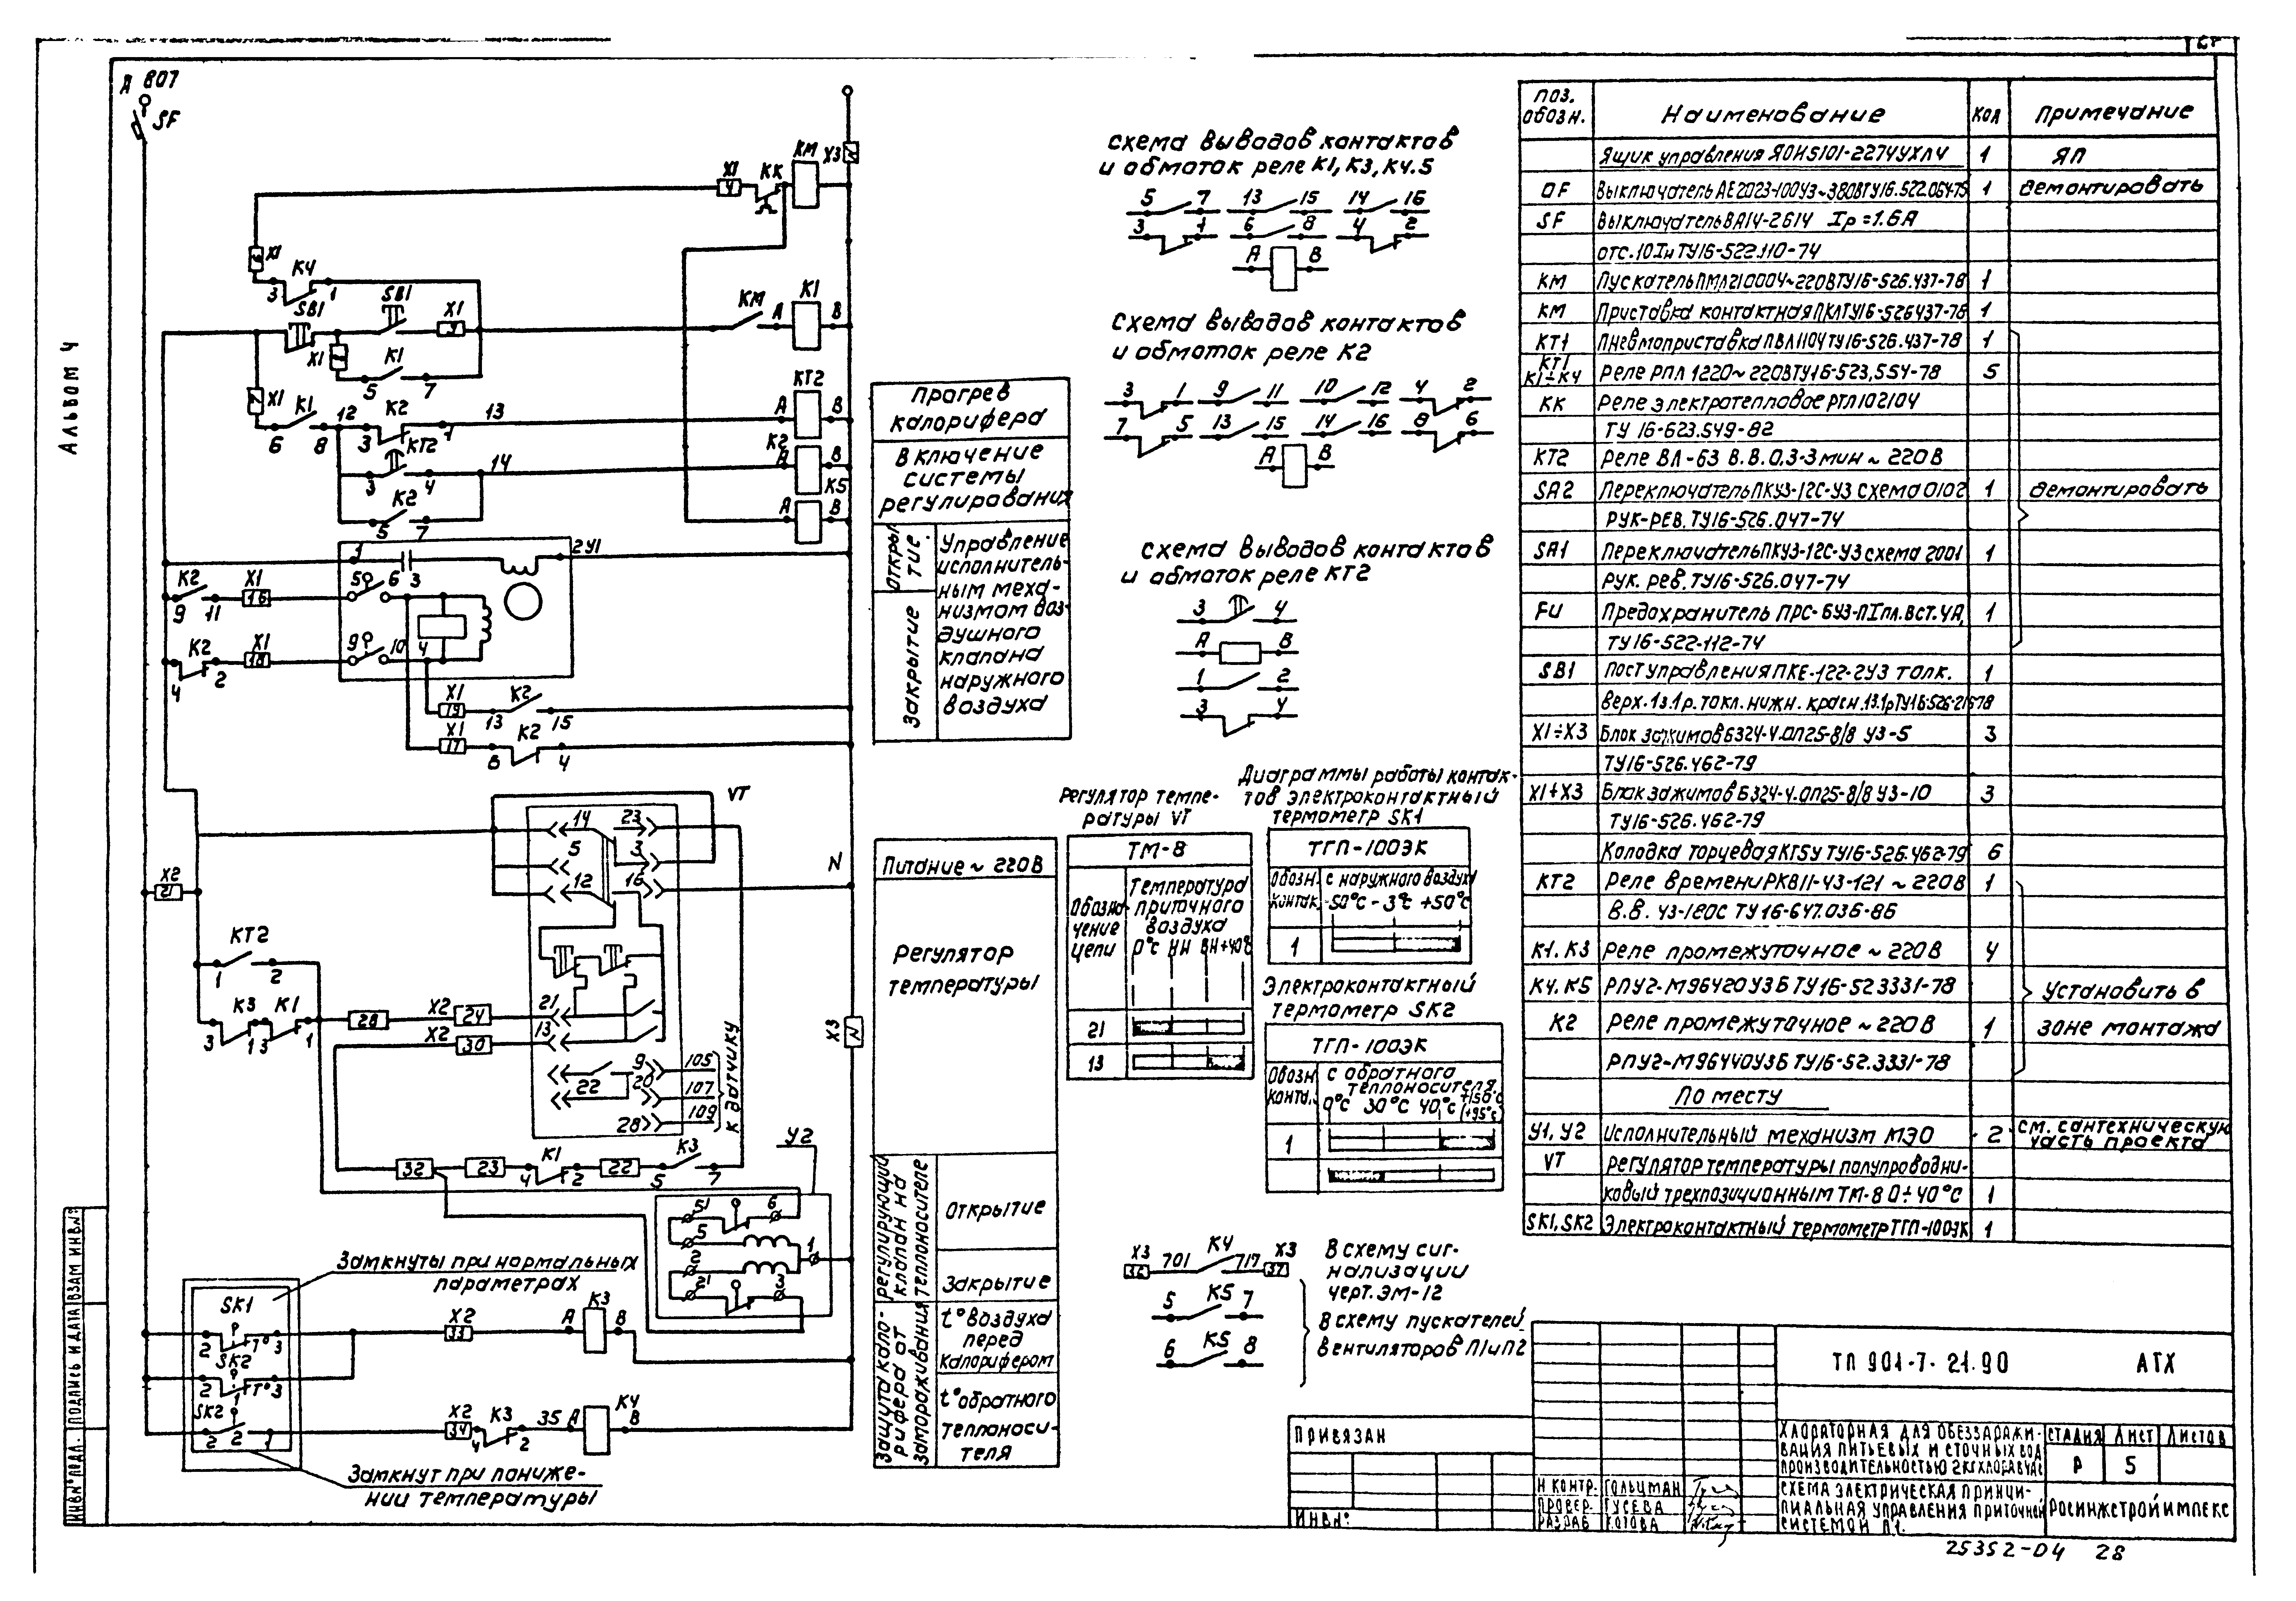 Альбом 4
А 807
SF
X1
4
КК
КМ
X3
X1
К4
3
1
SB1
SB1
X1
X1
К1
5
7
КМ
А
К1
В
X1
К1
6
8
12
3
К2
1
13
КТ2
А
В
КТ2
3
4
14
К2
А
В
К2
5
7
К5
А
В
1
3
2У1
К2
9
11
X1
16
5
6
К2
4
2
X1
18
9
10
4
X1
19
13
К2
15
X1
17
8
К2
4
Прогрев
калорифера
Включение
системы
регулирования
Откры-
тие.
Закрытие
Управление
исполнитель-
ным меха-
низмом воз-
душного
клапана
наружного
воздуха
VT
14
23
5
3
12
16
N
X2
21
КТ2
1
2
К3
К1
3
13
1
28
X2
24
21
X2
30
13
9
105
22
20
107
28
109
к датчику
X3
N
32
23
4
К1
2
22
5
К3
7
У2
5'
6
5
2
1
2'
3
Питание ~ 220В
Регулятор
температуры
Регулирующий
клапан на
теплоносителе
Открытие
Закрытие
Защита кало-
рифера от
замораживания
t° воздуха
перед
калорифером
t° обратного
теплоноси-
теля
Замкнуты при нормальных
параметрах
SK1
2
Т°
3
SK2
2
1
Т°
3
SK2
2
2
1
X2
33
А
К3
В
X2
34
4
К3
2
35
А
К4
В
Замкнут при пониже-
нии температуры
Схема выводов контактов
и обмоток реле К1, К3, К4.5
5 7 13 15 14 16
3 1 6 8 4 2
А В
Схема выводов контактов
и обмоток реле К2
3 1 9 11 10 12 4 2
7 5 13 15 14 16 8 6
А В
Схема выводов контактов
и обмоток реле КТ2
3 4
А В
1 2
3 4
Регулятор темпе-
ратуры VT
ТМ-8
Обозна-
чение
цепи
Температура
приточного
воздуха
0°С НН ВН +40°С
21
13
Диаграммы работы контак-
тов электроконтактный
термометр SK1
ТГП-100ЭК
Обозн.
контак.
с наружного воздуха
-50°С -3°С +50°С
1
Электроконтактный
термометр SK2
ТГП-100ЭК
Обозн.
конта.
с обратного
теплоносителя.
0°С 30°С 40°С +150°С
(+95°С)
1
X3
36
701
К4
717
X3
37
В схему сиг-
нализации
черт. ЭМ-12
5 К5 7
6 К5 8
В схему пускателей
вентиляторов П1иП2
Поз. обозн. Наименование Кол Примечание
Ящик управления ЯОИ5101-2274УХЛ4 1 ЯП
QF Выключатель АЕ2023-100У3~380ВТУ16.522.064-75 1 демонтировать
SF Выключатель ВА14-2614 Iр=1.6А
отс.10Iн ТУ16-522.110-74
КМ Пускатель ПМЛ210004~220ВТУ16-526.437-78 1
КМ Приставка контактная ПКЛТУ16-526437-78 1
КТ1 Пневмоприставка ПВЛ1104 ТУ16-526.437-78 1
КТ1 К1÷К4 Реле РПЛ 1220~ 220ВТУ16-523,554-78 5
КК Реле электротепловое РТЛ102104
ТУ 16-623.549-82
КТ2 Реле ВЛ-63 В.В.0,3-3мин ~ 220В
SA2 Переключатель ПКУ3-12С-У3 схема 0102 1 демонтировать
РУК-РЕВ. ТУ16-526.047-74
SA1 Переключатель ПКУ3-12С-У3 схема 2001 1
РУК. рев. ТУ16-526.047-74
FU Предохранитель ПРС-6У3-П Iпл.вст.4А, 1
ТУ16-522-112-74
SB1 Пост управления ПКЕ-122-2У3 толк. 1
Верх.1з.1р. толк. нижн. красн.1з.1р ТУ16-526-216-78
X1÷X3 Блок зажимов Б324-4.0П25-8/8 У3-5 3
ТУ16-526.462-79
X1÷X3 Блок зажимов Б324-4.0П25-8/8 У3-10 3
ТУ16-526.462-79
Колодка торцевая КТ5У ТУ16-526.462-79 6
КТ2 Реле времени РКВ11-43-121 ~ 220В 1
В.В. 43-180С ТУ16-647.036-86
К1. К3 Реле промежуточное ~ 220В 4
К4. К5 РПУ2-М96420У3Б ТУ16-523331-78 Установить в
К2 Реле промежуточное ~ 220В 1 зоне монтажа
РПУ2-М96440У3Б ТУ16-52.3331-78
По месту
У1, У2 Исполнительный механизм МЭО 2 см. сантехническую часть проекта
VT Регулятор температуры полупроводни-
ковый трехпозиционным ТМ-8 0÷40°С 1
SK1, SK2 Электроконтактный термометр ТГП-100ЭК 1
ТП 901-7-21.90 АТХ
Привязан
Инв№
Хлораторная для обеззаражи-
вания питьевых и сточных вод
производительностью 2кг хлора в час
Стадия Лист Листов
Р 5
Н контр. Гольцман
Провер. Гусева
Разраб. Котова
Схема электрическая принци-
пиальная управления приточной
системой П1.
Росинжстройимпекс
Инв№ подл. Подпись и дата Взам инв№
25352-04 28